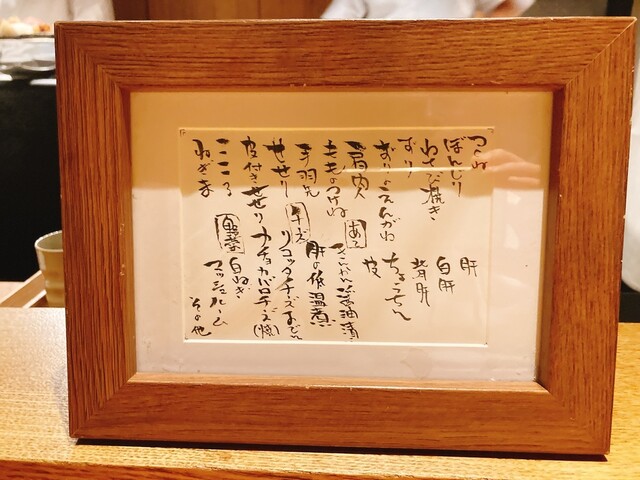 つくね
ぼんじり
わさび焼き
ずり
ずりのえんがわ
肩肉
もものつけね
手羽先
せせり
皮付きせせり
こころ
ねぎま
肝
白肝
背肝
ちょうちん
皮
あて
きんかん醤油漬
肝の低温煮
リコッタチーズ
カチョカバロチーズ(焼)
野菜
白ねぎ
マッシュルーム
その他